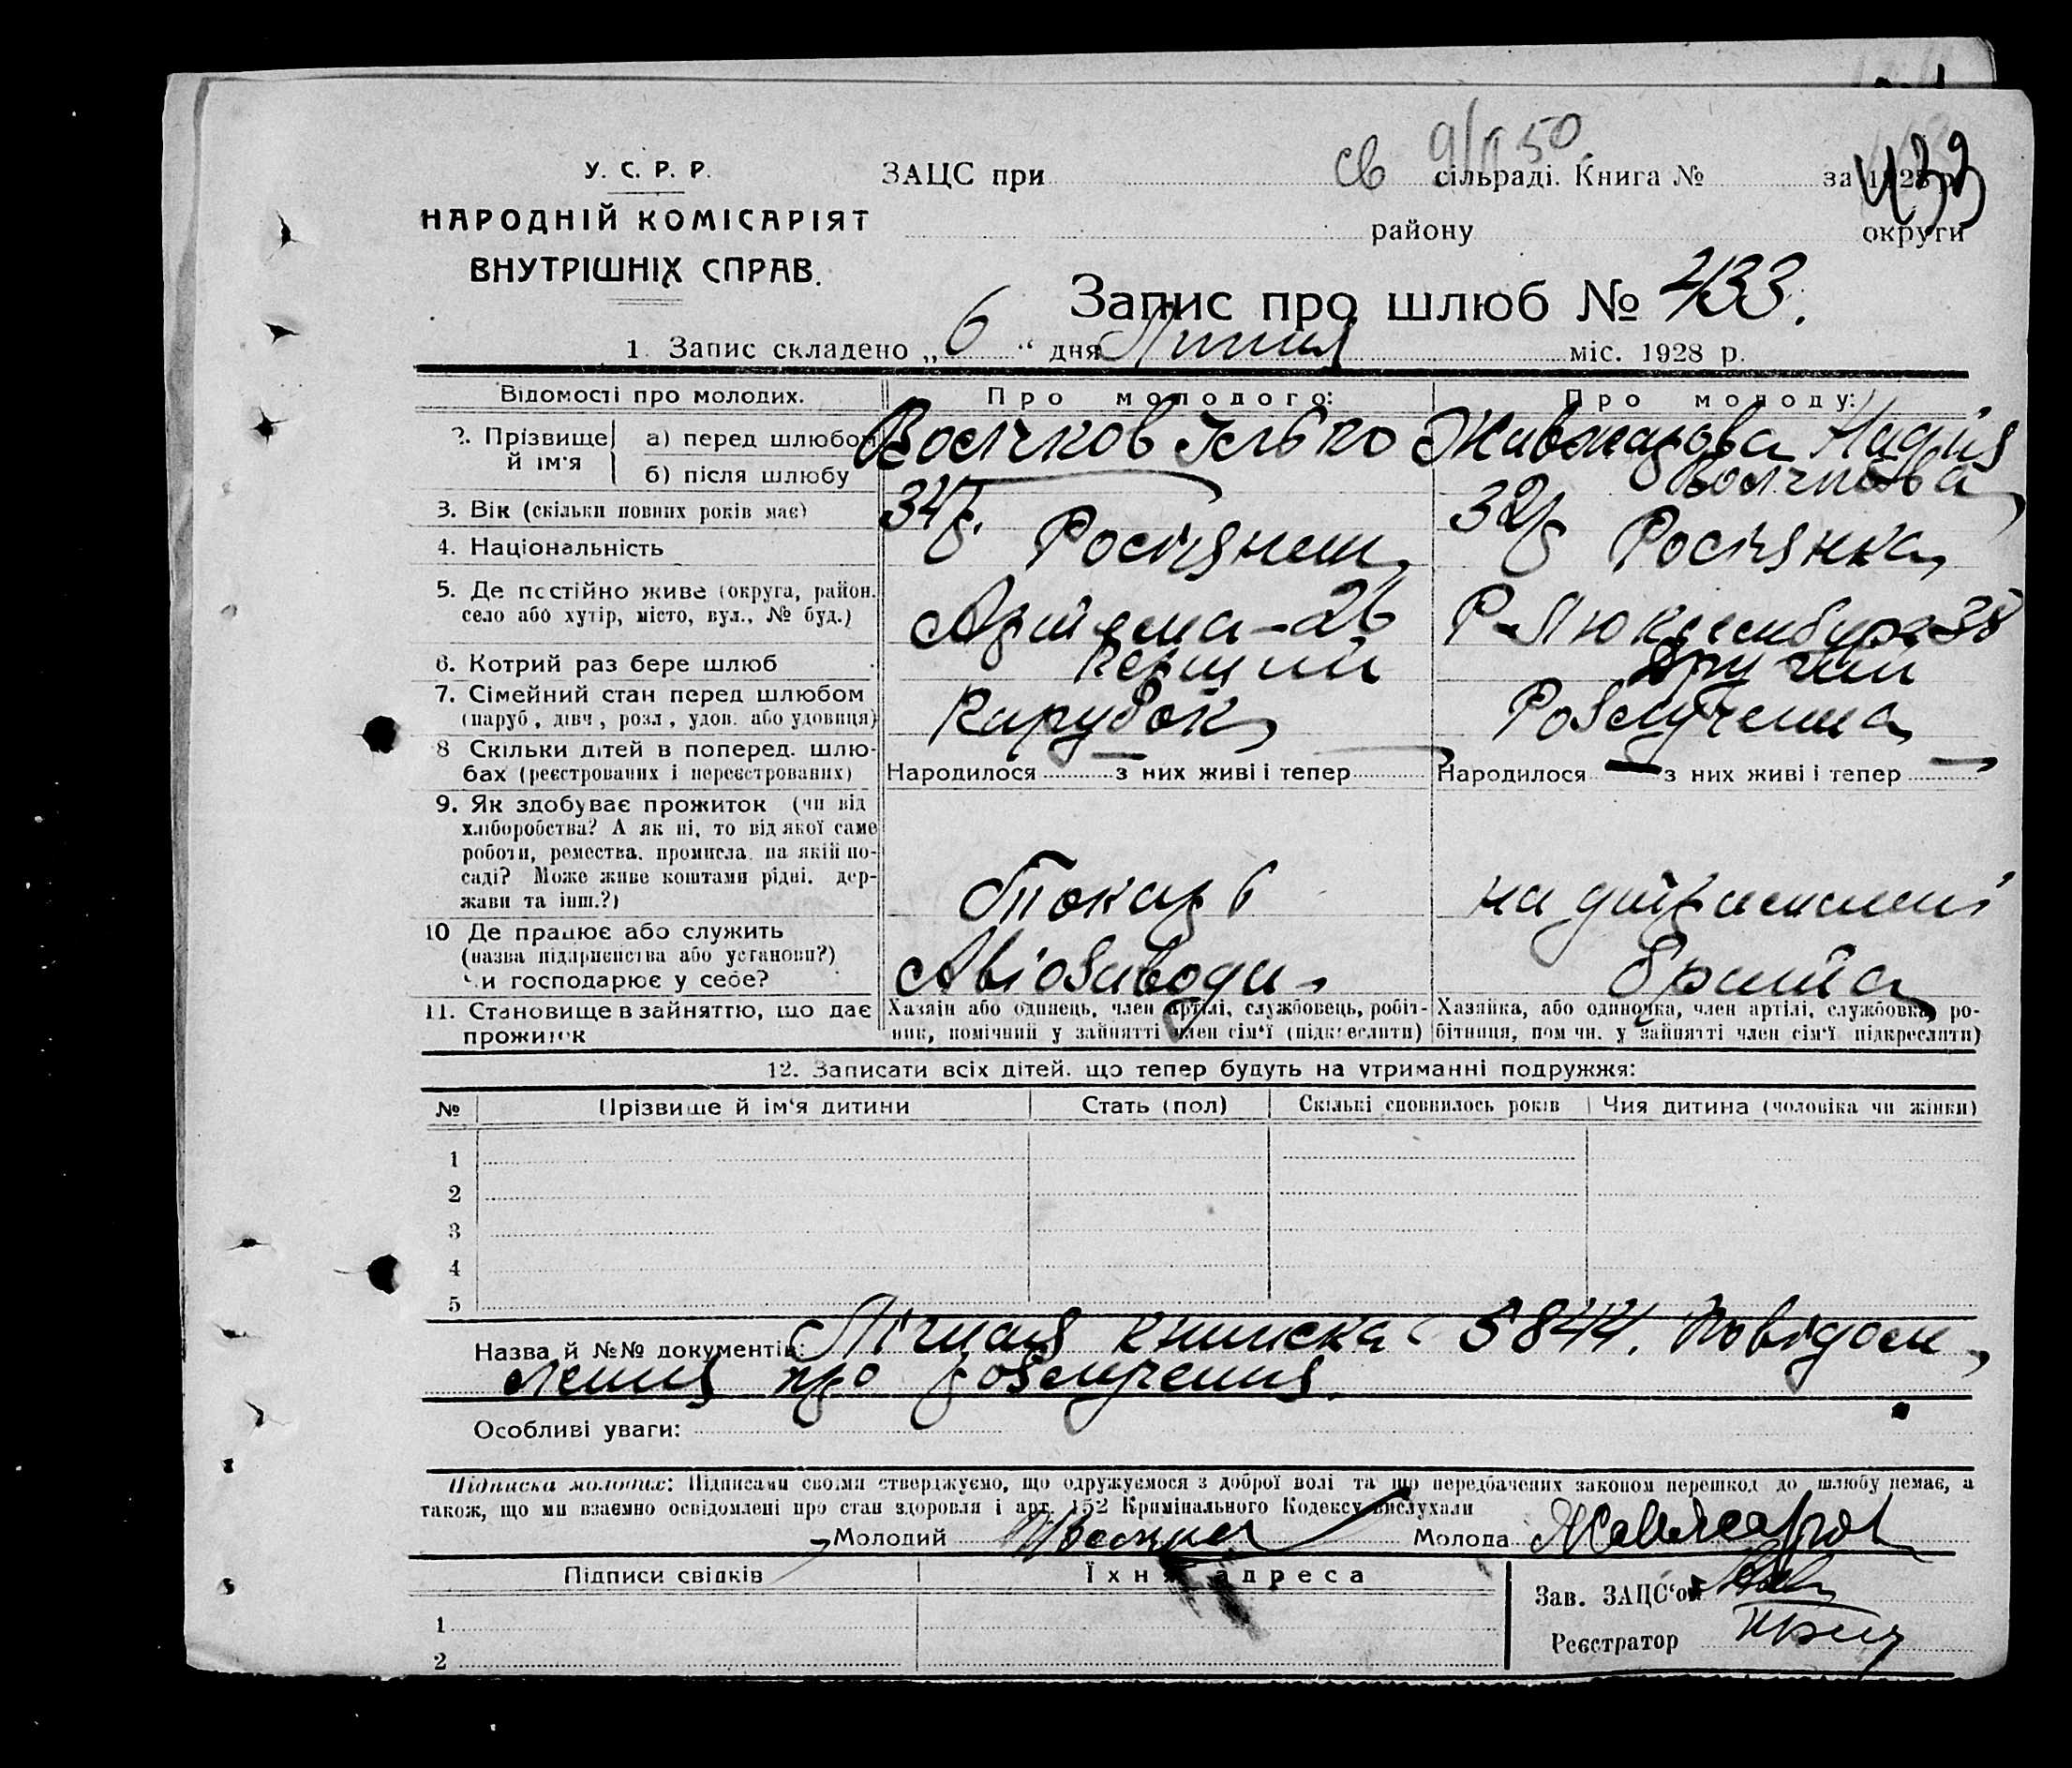 св 9/II 50
У. С. Р. Р.
ЗАЦС при сільраді. Книга № за 1928 р.
433
НАРОДНІЙ КОМІСАРІЯТ
району округи
ВНУТРІШНІХ СПРАВ.
Запис про шлюб № 433.
1. Запис складено „6“ дня Липня міс. 1928 р.
Відомості про молодих. Про молодого: Про молоду:
2. Прізвище й ім'я а) перед шлюбом Волчков Ілько Надія
б) після шлюбу Волчкова
3. Вік (скільки повних років має) 34р. 32р
4. Національність Росіянин Росіянка
5. Де постійно живе (округа, район.
село або хутір, місто, вул., № буд.) Артема-26 Р-Люксембург-38
6. Котрий раз бере шлюб Перший Другий
7. Сімейний стан перед шлюбом
(паруб., дівч., розл., удов. або удовиця) Парубок Розлучена
8 Скільки дітей в поперед. шлю-
бах (реєстрованих і нереєстрованих) Народилося — з них живі і тепер — Народилося — з них живі і тепер —
9. Як здобуває прожиток (чи від
хліборобства? А як ні, то від якої саме
роботи, ремества, промисла, на якій по-
саді? Може живе коштами рідні, дер-
жави та інш.?) Токар б на утриманні
10 Де працює або служить
(назва підприємства або установи?)
Чи господарює у себе? Авіозаводи брата
11. Становище в зайняттю, що дає
прожиток
Хазяїн або одинець, член артілі, службовець, робіт-
ник, помічний у зайнятті член сім'ї (підкреслити)
Хазяйка, або одиночка, член артілі, службовка, ро-
бітниця, помічн. у зайнятті член сім'ї підкреслити)
12. Записати всіх дітей, що тепер будуть на утриманні подружжя:
№ Прізвище й ім'я дитини Стать (пол) Скількі сповнилось років Чия дитина (чоловіка чи жінки)
1
2
3
4
5
Назва й №№ документів: Лічная книжка 5844. Повідом
лення про розлучення.
Особливі уваги:
Підписка молодих: Підписами своїми стверджуємо, що одружуємося з доброї волі та що передбачених законом перешкод до шлюбу немає, а
також, що ми взаємно освідомлені про стан здоровля і арт. 152 Кримінального Кодексу вислухали
Молодий Молода
Підписи свідків Їхня адреса
Зав. ЗАЦС'ом
1
Реєстратор
2